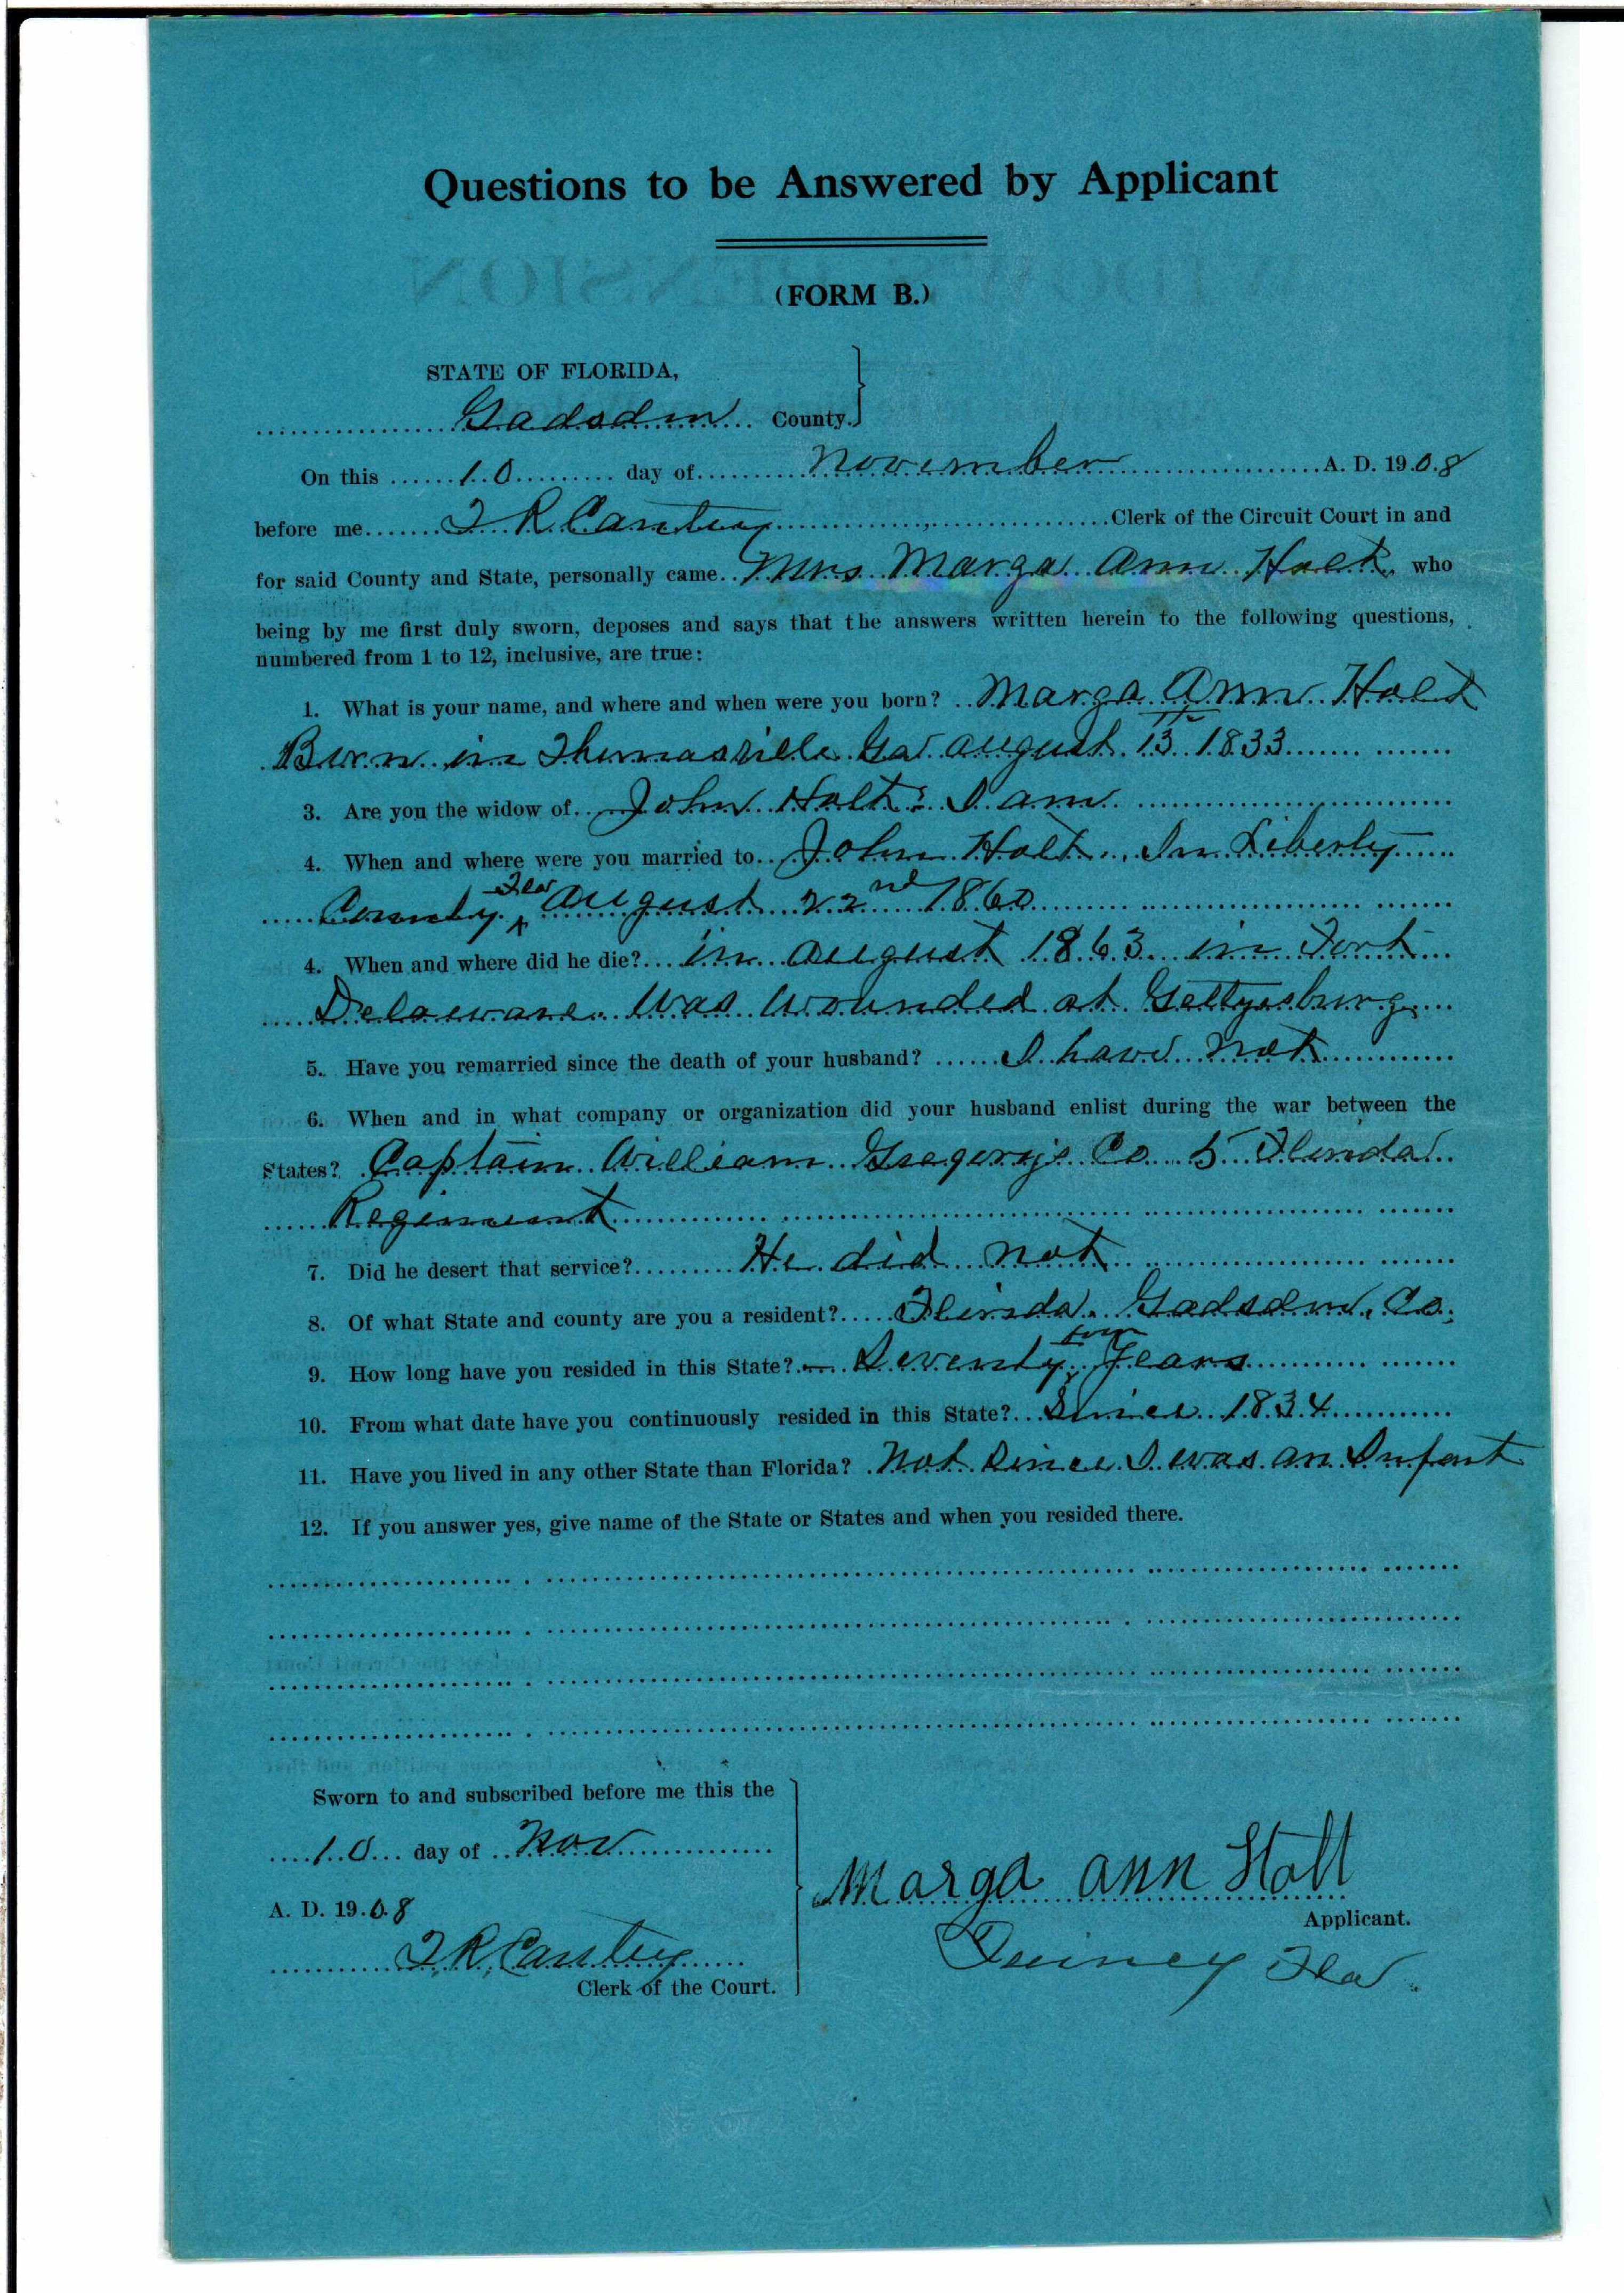 Questions to be Answered by Applicant
(FORM B.)
STATE OF FLORIDA,
Gadsden County.
On this 10 day of November A. D. 1908
before me J R Cantey Clerk of the Circuit Court in and
for said County and State, personally came Mrs Marga Ann Holt, who
being by me first duly sworn, deposes and says that the answers written herein to the following questions,
numbered from 1 to 12, inclusive, are true:
1. What is your name, and where and when were you born? Marga Ann Holt
Born in Thomasville Ga august 13th 1833
3. Are you the widow of John Holt? I am
4. When and where were you married to John Holt. In Liberty
County Fla August 22nd 1860
4. When and where did he die? in August 1863 in Fort
Delaware. Was wounded at Gettysburg
5. Have you remarried since the death of your husband? I have not
6. When and in what company or organization did your husband enlist during the war between the
States? Captain William Gregory's Co 5 Florida
Regiment
7. Did he desert that service? He did not
8. Of what State and county are you a resident? Florida. Gadsden, Co.
9. How long have you resided in this State? Seventy four Years
10. From what date have you continuously resided in this State? Since 1834
11. Have you lived in any other State than Florida? Not since I was an Infant
12. If you answer yes, give name of the State or States and when you resided there.
Sworn to and subscribed before me this the
10 day of Nov
A. D. 1908
J. R. Cantey
Clerk of the Court.
Marga ann Holt
Applicant.
Quincy Fla.